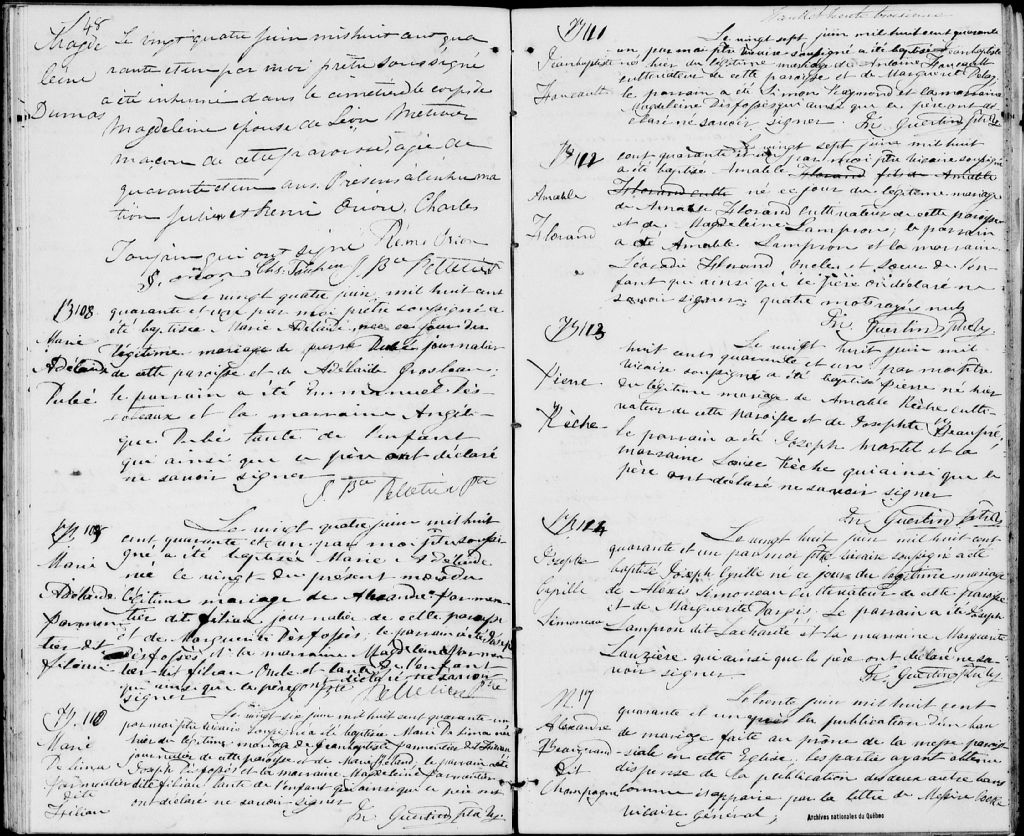 48
Magde
leine
Dumas
Le vingt quatre juin mil huit cent qua
rante et un par moi prêtre soussigné
a été inhumé dans le cimetière le corps de
Magdeleine épouse de Léon Metivier
maçon de cette paroisse, agée de
quarante et un ans. Présens à l'inhuma
tion Julien et Henri Orion, Charles
qui ont signé Rémi Orion
J. Bte Pelletier
B 108
Marie
Adélaide
Dubé
Le vingt quatre juin mil huit cent
quarante et un par moi prêtre soussigné a
été baptisée Marie Adelaide, née ce jour du
légitime mariage de pierre Dubé journalier
de cette paroisse et de Adelaide Grosleau;
le parrain a été Emmanuel Dés
coteaux et la marraine Angéli-
que Dubé tante de l'enfant
qui ainsi que le père ont déclaré
ne savoir signer
J. Bte Pelletier Ptre
B. 109
Marie
Adélaide
parmen
tier dit
filion
Le vingt quatre juin mil huit
cent quarante et un par moi ptre soussi-
gné a été baptisée Marie Adélaide
née le vingt du présent mois du
légitime mariage de Alexandre Parmen-
tier dit filian journalier de cette parois
et de Marguerite Desfossés; le parrain a été
Desfossés et la marraine Magdeleine Parmen
tier dit filian Oncle et tante de l'enfant
qui ainsi que le père ont déclaré ne savoir
signer
Pelletier Ptre
B. 110
Marie
Delima
Parmentier
dite
filian
Le vingt six juin mil huit cent quarante un
par moi ptre vicaire soussigné a été baptisée Marie Delima née
hier du légitime mariage de Jeanbaptiste parmentier dit filian
journalier de cette paroisse et de Marie ; le parrain a été
Joseph Desfossés et la marraine Magdeleine Parmentier
dite filian tante de l'enfant qui ainsi que le père ont
ont déclaré ne savoir signer
Fr. Guertin ptre
B 111
Jeanbaptiste
Foucault
Le vingt sept juin mil huit cent quarante
un par moi ptre vicaire soussigné a été baptisé Jeanbaptiste
né hier du légitime mariage de Antoine Foucault
cultivateur de cette paroisse et de Marguerite
le parrain a été Simon Raymond et la marraine
Magdeleine Desfossés qui ainsi que le père ont dé
claré ne savoir signer. Fr. Guertin ptre
B 112
Amable
Florand
Le vingt sept juin mil huit
cent quarante et un par moi ptre vicaire soussigné
a été baptisé Amable Florand fils de Amable
Florand né ce jour du légitime mariage
de Amable Florand cultivateur de cette paroisse
et de Magdeleine Lampron; le parrain
a été Amable Lampron et la marraine
Léocadie Florand, oncle et soeur de l'en-
fant qui ainsi que le père ont déclaré ne
savoir signer; quatre mots rayés nuls
Fr. Guertin ptre
B 113
Pierre
Rèche
Le vingt huit juin mil
huit cent quarante et un par moi ptre
vicaire soussigné a été baptisé Pierre né hier
du légitime mariage de Amable Rèche culti-
vateur de cette paroisse et de Josephte Beaupré,
le parrain a été Joseph Martel et la
marraine Louise Rèche qui ainsi que le
père ont déclaré ne savoir signer
Fr. Guertin ptre
B. 114
Joseph
Cyrille
Simoneau
Le vingt huit juin mil huit cent
quarante et un par moi ptre vicaire soussigné a été
baptisé Joseph Cyrille né ce jour du légitime mariage
de Alexis Simoneau cultivateur de cette paroisse
et de Marguerite Dargis. Le parrain a été Joseph
Lampron dit Lacharité et la marraine Marguerite
Lauzière qui ainsi que le père ont déclaré ne sa-
voir signer
Fr. Guertin ptre
M. 17
Alexandre
Beaugrand
dit
Champagne
Le trente juin mil huit cent
quarante et un après la publication d'un ban
de mariage faite au prône de la messe parois
siale en cette Eglise; les parties ayant obtenu
dispense de la publication des deux autres bans
comme il appert par la lettre de Messire
vicaire Général;
Archives nationales du Québec